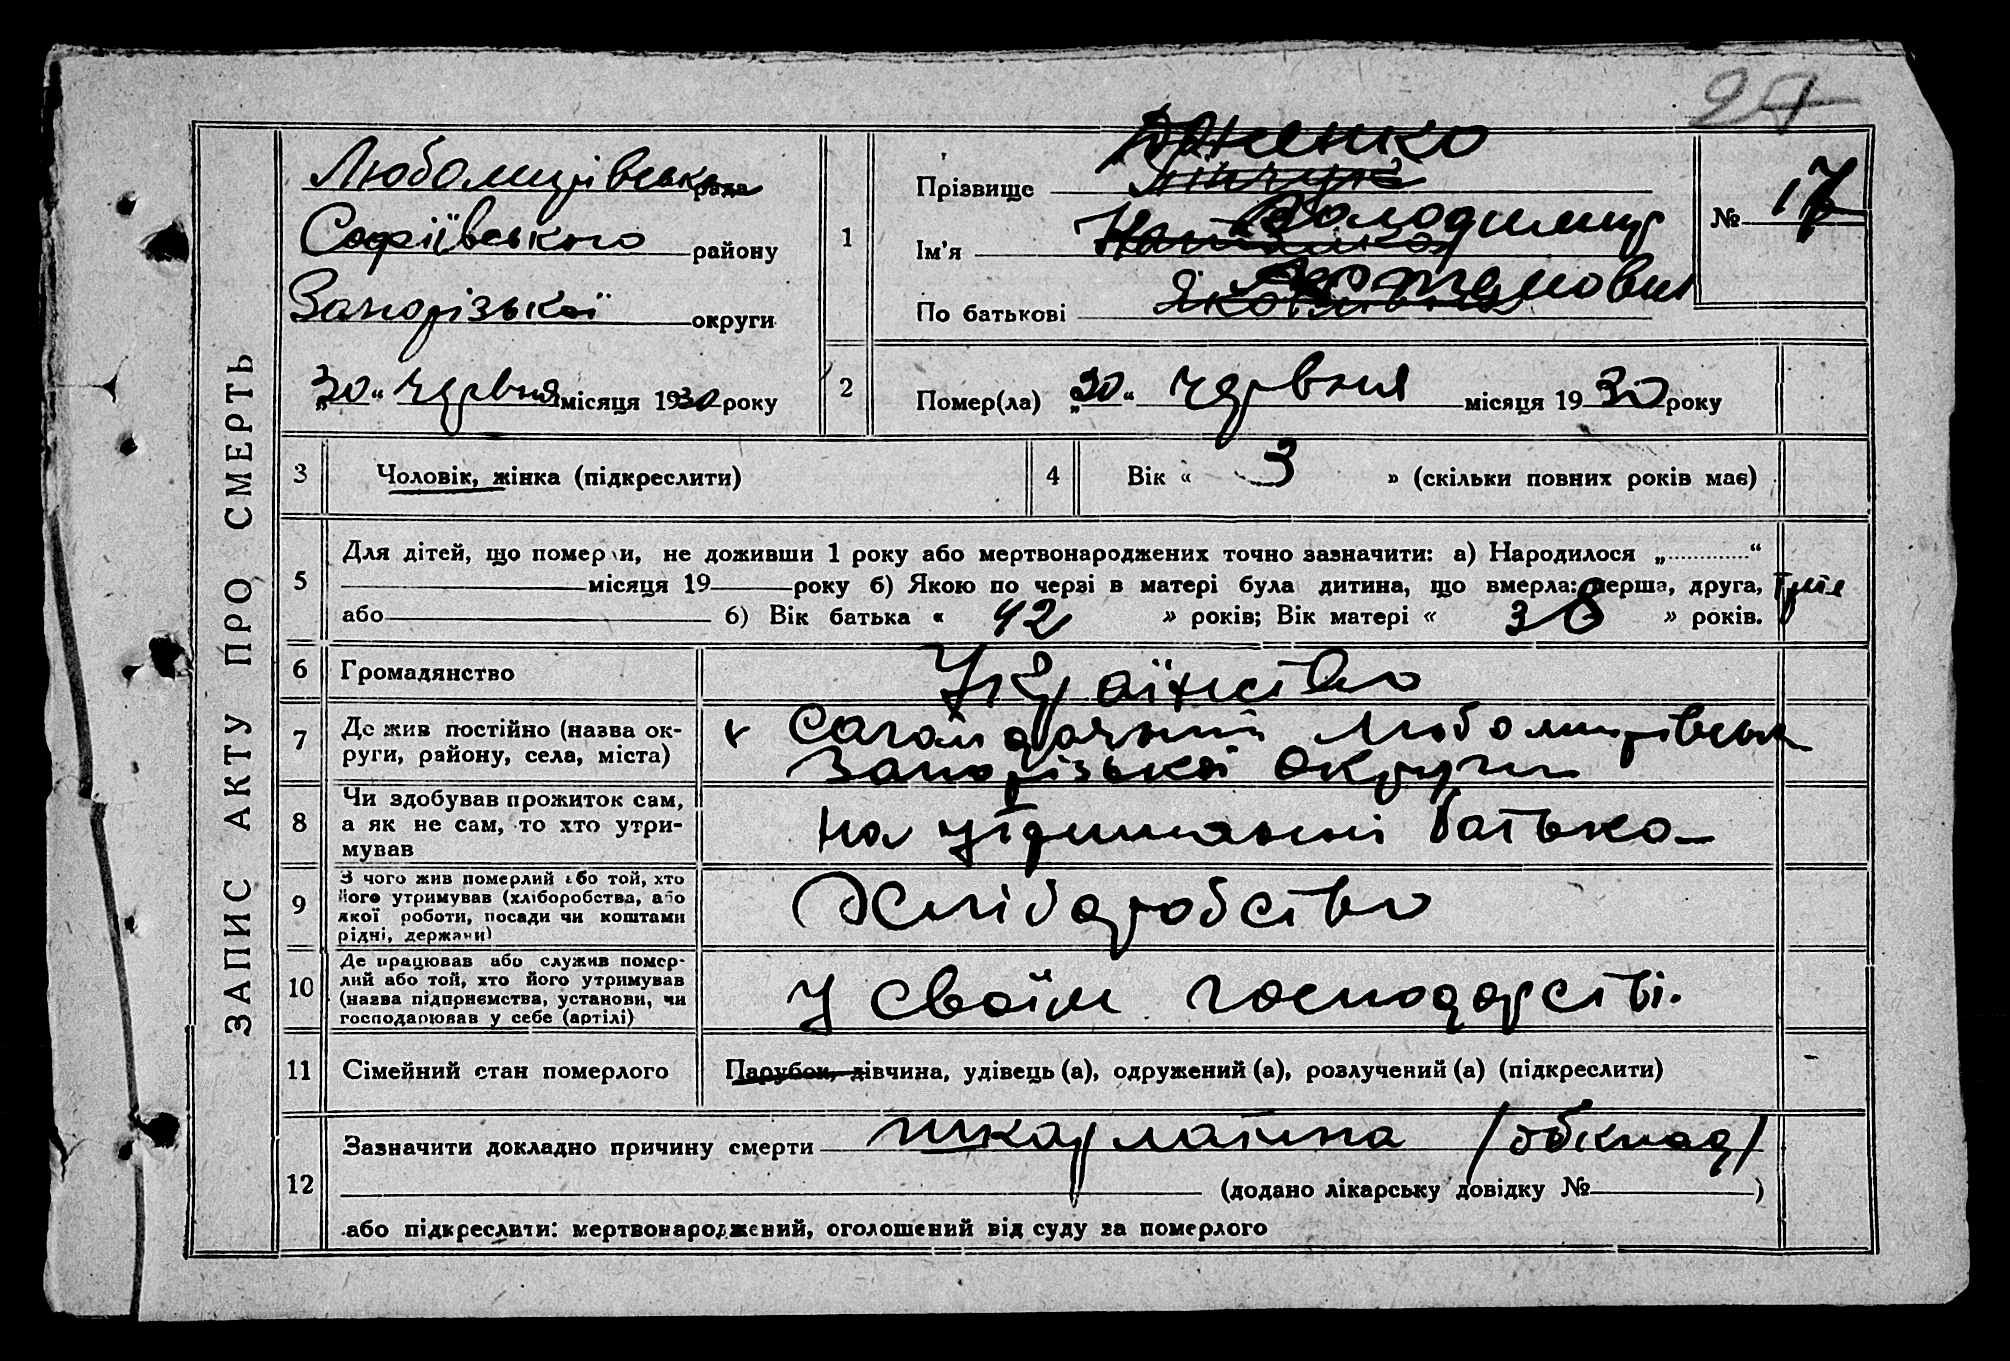 27
ЗАПИС АКТУ ПРО СМЕРТЬ
Любомирівська рада
Софіївського району
Запорізької округи
„30“ червня місяця 1930 року
1
Прізвище
Ім’я Володимир
По батькові
№ 17
2
Помер(ла) „30“ червня місяця 1930 року
3 Чоловік, жінка (підкреслити)
4 Вік « 3 » (скільки повних років має)
5
Для дітей, що померли, не доживши 1 року або мертвонароджених точно зазначити: а) Народилося „............“
місяця 19 року б) Якою по черзі в матері була дитина, що вмерла: перша, друга, третя
або б) Вік батька « 42 » років; Вік матері « 38 » років.
6 Громадянство Українство
7
Де жив постійно (назва ок-
руги, району, села, міста)
х Сагайдачний Любомирівськ
Запорізької округи
8
Чи здобував прожиток сам,
а як не сам, то хто утри-
мував
на утриманні батька
9
З чого жив померлий або той, хто
його утримував (хліборобства, або
якої роботи, посади чи коштами
рідні, держави)
Хліборобство
10
Де працював або служив помер-
лий або той, хто його утримував
(назва підприємства, установи, чи
господарював у себе (артілі)
У своїм господарстві.
11 Сімейний стан померлого
Парубок, дівчина, удівець (а), одружений (а), розлучений (а) (підкреслити)
12
Зазначити докладно причину смерти шкарлатина /обклад/
(додано лікарську довідку № )
або підкреслити: мертвонароджений, оголошений від суду за померлого